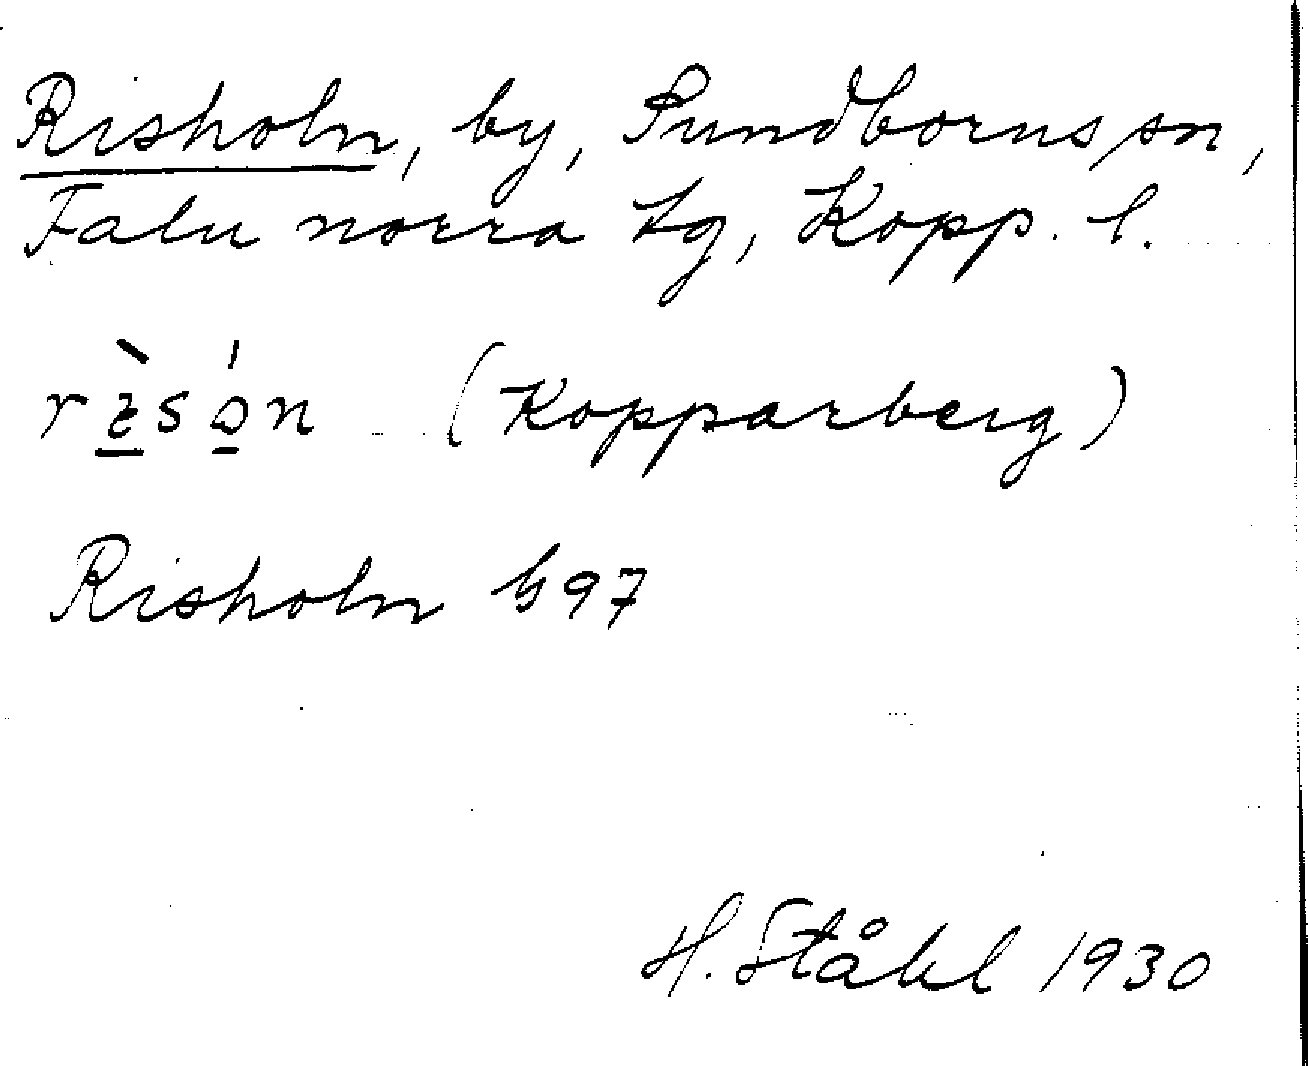 Risholn, by, Sundborns sn,
Falu norra tg, Kopp. l.
(Kopparberg)
Risholn G97
H. Ståhl 1930